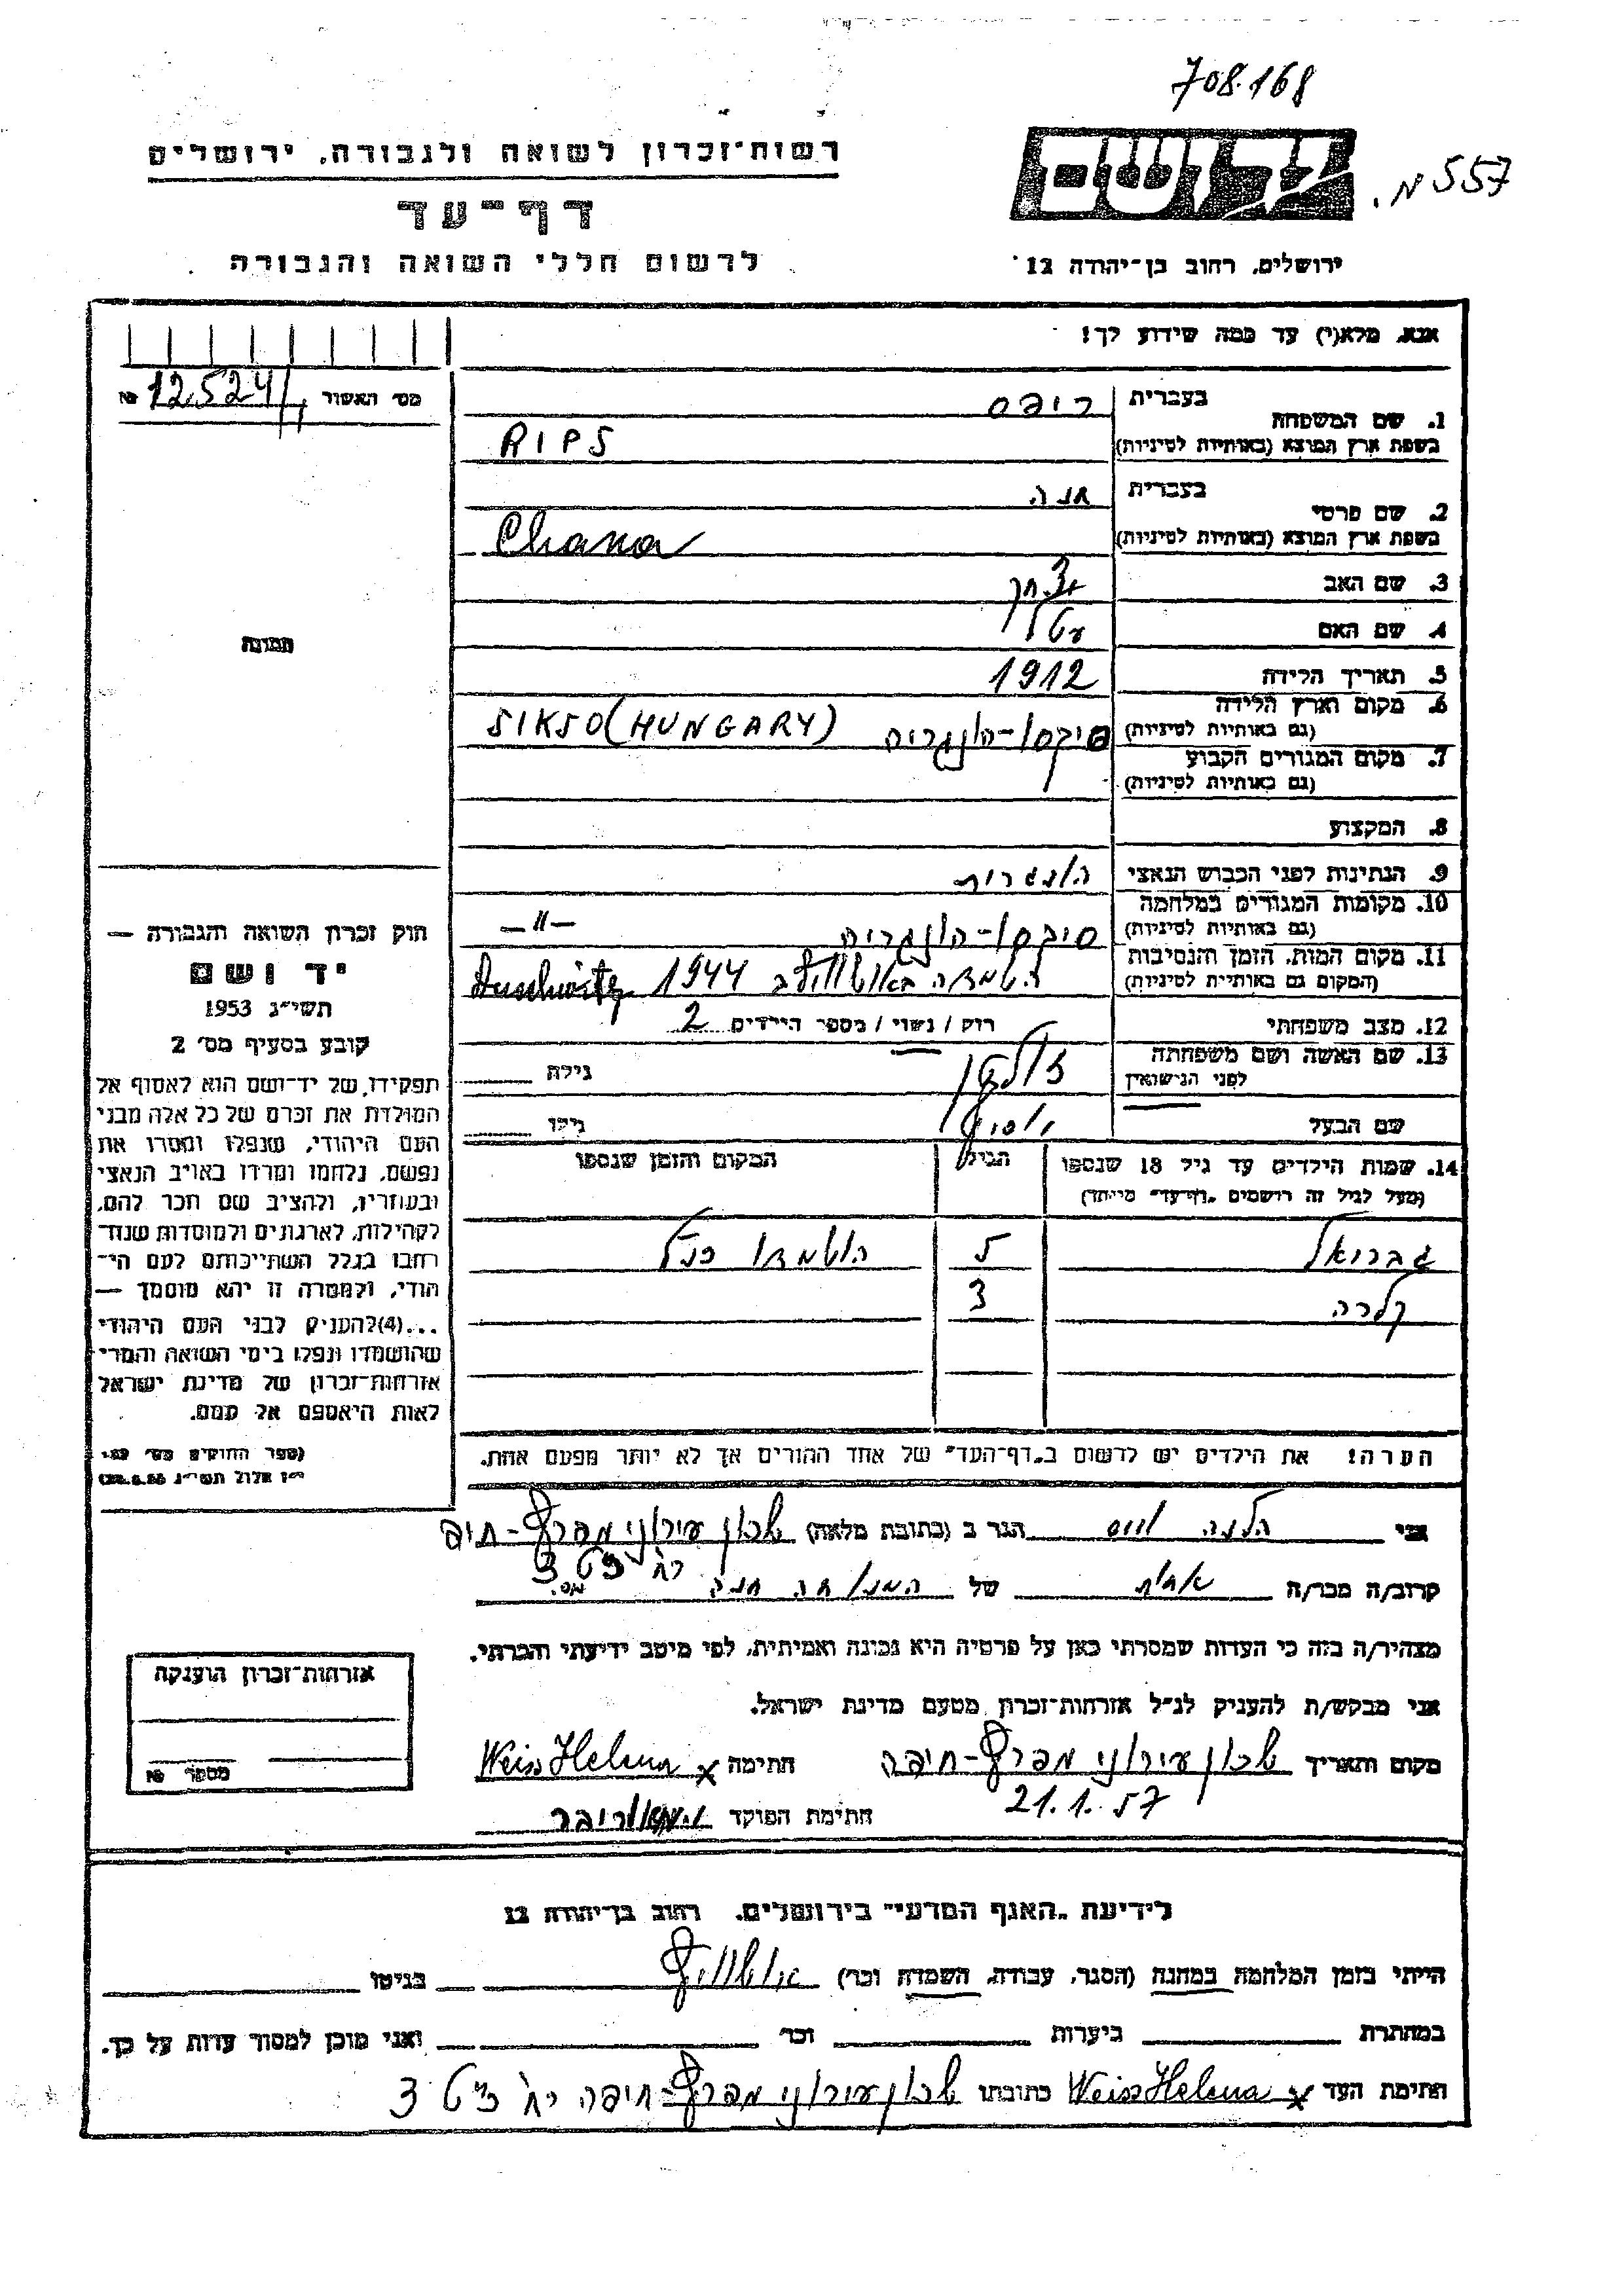 708.168
רשות־זכרון לשואה ולגבורה, ירושלים
יד ושם
557 מ.
דף־עד
ירושלים, רחוב בן־יהודה 12
לרשום חללי השואה והגבורה
אנא, מלא(י) עד כמה שידוע לך!
מס׳ האשור 12.524 №
1. שם המשפחה
בעברית ריפס
בשפת ארץ המוצא (באותיות לטיניות) RIPS
2. שם פרטי
בעברית חנה
בשפת ארץ המוצא (באותיות לטיניות) Chana
3. שם האב יצחק
4. שם האם
5. תאריך הלידה 1912
6. מקום וארץ הלידה
(גם באותיות לטיניות) סיקסו-הונגריה SIKSO (HUNGARY)
7. מקום המגורים הקבוע
(גם באותיות לטיניות)
8. המקצוע
9. הנתינות לפני הכבוש הנאצי הונגרית
10. מקומות המגורים במלחמה
(גם באותיות לטיניות) סיקסו-הונגריה -"-
11. מקום המות, הזמן והנסיבות
(המקום גם באותיות לטיניות) הושמדה באושוויץ ב 1944 Auschwitz
12. מצב משפחתי רווק / נשוי / מספר הילדים 2
13. שם האשה ושם משפחתה
לפני הנישואין גילה
שם הבעל גילו
14. שמות הילדים עד גיל 18 שנספו הגיל המקום והזמן שנספו
(מעל לגיל זה רושמים „דף־עד" מיוחד)
גבריאל 5 הושמדו כנ"ל
קלרה 3
הערה! את הילדים יש לרשום ב„דף־העד" של אחד ההורים אך לא יותר מפעם אחת.
תמונה
חוק זכרון השואה והגבורה —
יד ושם
תשי״ג 1953
קובע בסעיף מס׳ 2
תפקידו של יד־ושם הוא לאסוף אל
המולדת את זכרם של כל אלה מבני
העם היהודי, שנפלו ומסרו את
נפשם, נלחמו ומרדו באויב הנאצי
ובעוזריו, ולהציב שם וזכר להם,
לקהילות, לארגונים ולמוסדות שנח־
רבו בגלל השתייכותם לעם הי־
הודי, ולמטרה זו יהא מוסמך —
...(4)להעניק לבני העם היהודי
שהושמדו ונפלו בימי השואה והמרי
אזרחות־זכרון של מדינת ישראל
לאות היאספם אל עמם.
(ספר החוקים מס׳ 132,
י״ז אלול תשי״ג 28.8.53)
אני הלנה וויס הגר ב (כתובת מלאה) שכון עירוני מפרץ-חיפה
רח׳ כ"ט 3
קרוב/ה מכר/ה אחות של המנוחה חנה מס.
מצהיר/ה בזה כי העדות שמסרתי כאן על פרטיה היא נכונה ואמיתית, לפי מיטב ידיעתי והכרתי.
אני מבקש/ת להעניק לנ״ל אזרחות־זכרון מטעם מדינת ישראל.
מקום ותאריך שכון עירוני מפרץ-חיפה חתימה x Weiss Helena
21.1.57
חתימת הפוקד
אזרחות־זכרון הוענקה
מספר №
לידיעת „האגף המדעי" בירושלים, רחוב בן־יהודה 12
הייתי בזמן המלחמה במחנה (הסגר, עבודה, השמדה וכו׳) אושוויץ בגיטו
במחתרת ביערות וכו׳ ואני מוכן למסור עדות על כך.
חתימת העד x Weiss Helena כתובתו שכון עירוני מפרץ-חיפה רח׳ כ"ט 3